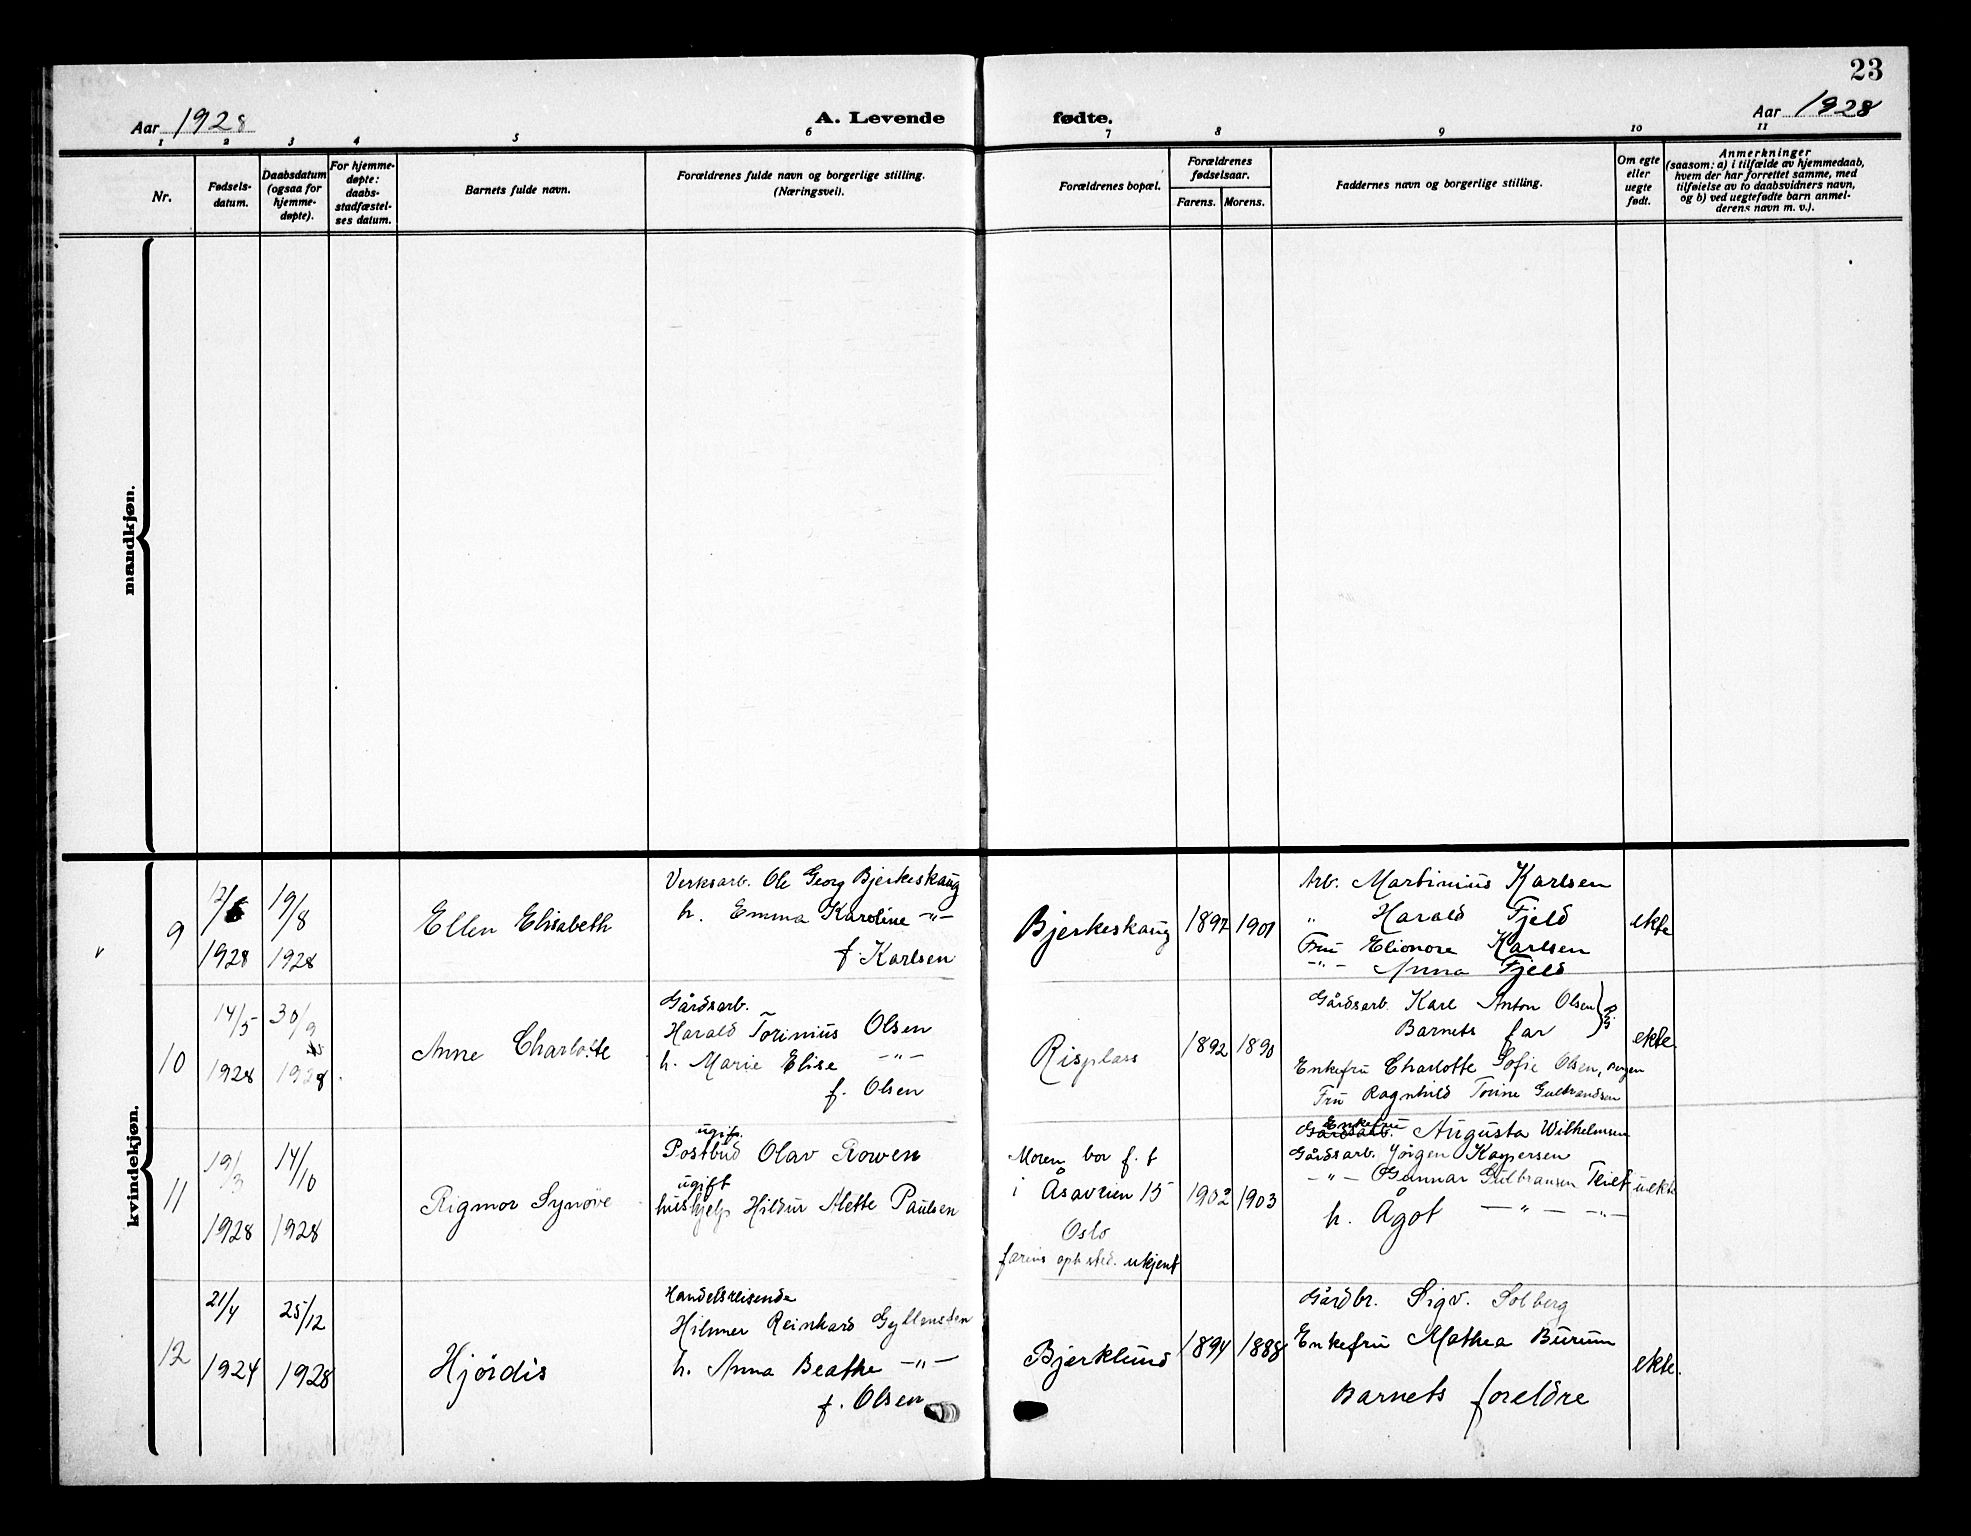 23
Aar 1928
A. Levende fødte.
Aar 1928
1 2 3 4 5 6 7 8 9 10 11
Nr.
Fødsels-
datum.
Daabsdatum
(ogsaa for
hjemme-
døpte).
For hjemme-
døpte:
daabs-
stadfæstel-
ses datum.
Barnets fulde navn.
Forældrenes fulde navn og borgerlige stilling.
(Næringsvei).
Forældrenes bopæl.
Forældrenes
fødselsaar.
Farens. Morens.
Faddernes navn og borgerlige stilling.
Om egte
eller
uegte
født.
Anmerkninger
(saasom: a) i tilfælde av hjemmedaab,
hvem der har forrettet samme, med
tilføielse av to daabsvidners navn,
og b) ved uegtefødte barn anmel-
derens navn m. v.).
mandkjøn.
kvindekjøn.
9
1928
19/8
1928
Ellen Elisabeth
Verksarb. Ole Georg Bjerkeskaug
h. Emma Karoline -"-
f. Karlsen
Bjerkeskaug
1897
1901
Arb. Martinius Karlsen
" Harald Fjeld
Fru Elionora Karlsen
-"- Anna Fjeld
ekte
10
14/5
1928
30/9
1928
Anne Charlotte
Gårdsarb.
Harald Torinius Olsen
h. Marie Elise -"-
f. Olsen
Risplass
1892
1890
Gårdsarb. Karl Anton Olsen
Barnets far
Enkefru Charlotte Sofie Olsen,
Fru Ragnhild Torine Gulbrandsen
ekte.
11
19/3
1928
14/10
1928
Rigmor Synøve
ugift
Postbud Olav Rowen
ugift
hushjelp Hildur Alette Paulsen
Moren bor f. t
i Åsaveien 15
Oslo
farens oph.sted. ukjent
1902
1903
Enkefru
Gårdsarb. Augusta Wilhelmsen
Gårdsarb. Jørgen Kaspersen
-"- Gunnar Gulbransen Teilt
h. Ågot -"- -"-
uekte
12
21/4
1924
25/12
1928
Hjördis
Handelsreisende
Hilmer Reinhard Gyllensten
h. Anna Beathe -"-
f. Olsen
Bjerklund
1894
1888
Gårdbr. Sigv. Solberg
Enkefru Mathea Burum
Barnets foreldre
ekte.